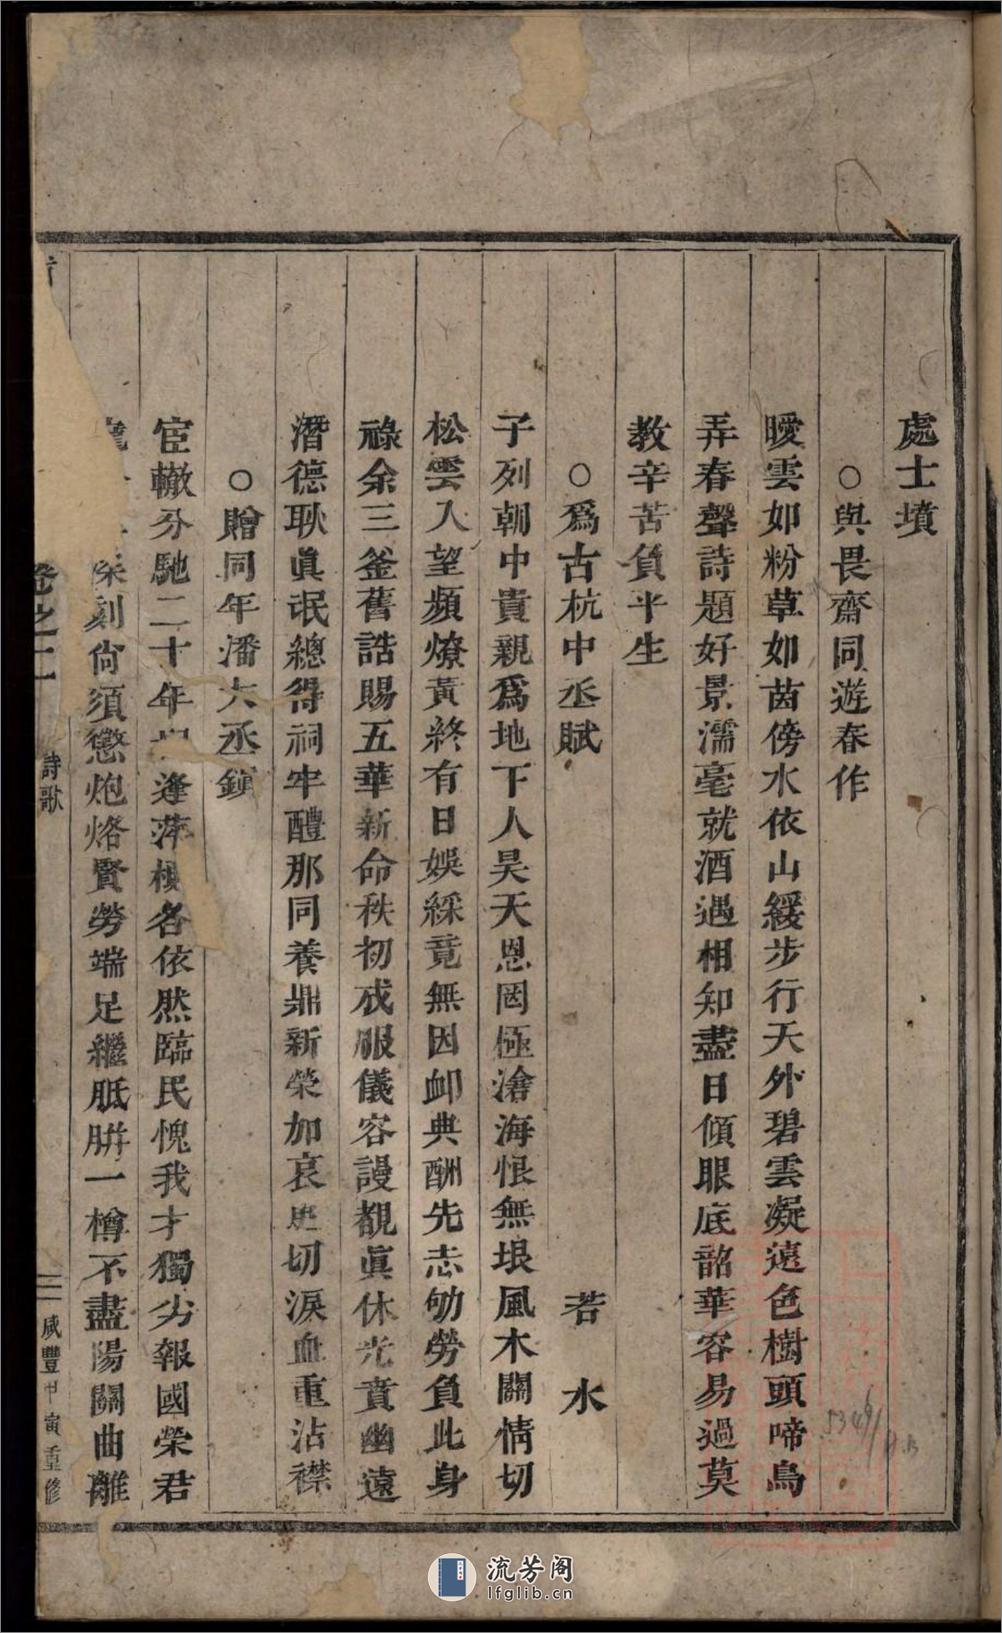 處士墳
○與畏齋同遊春作
曖雲如粉草如茵傍水依山緩步行天外碧雲凝遠色樹頭啼鳥
弄春聲詩題好景濡毫就酒遇相知盡日傾眼底韶華容易過莫
教辛苦負平生
○爲古杭中丞賦 若水
子列朝中貴親爲地下人昊天恩罔極滄海恨無垠風木關情切
松雲入望頻燎黃終有日娛綵竟無因卹典酬先志劬勞負此身
祿余三釜舊誥賜五華新命秩初成服儀容謾覩眞休光賁幽遠
潛德耿眞泯總得祠牢醴那同養鼎新榮加哀切淚血重沾襟
○贈同年潘大丞鎮
宦轍分馳二十年逢萍梗各依然臨民愧我才獨劣報國榮君
深刻尙須懲炮烙賢勞端足繼胝胼一樽不盡陽關曲離
卷之二 詩歌 三 咸豐甲寅重修
5349
流芳阁
lfglib.cn